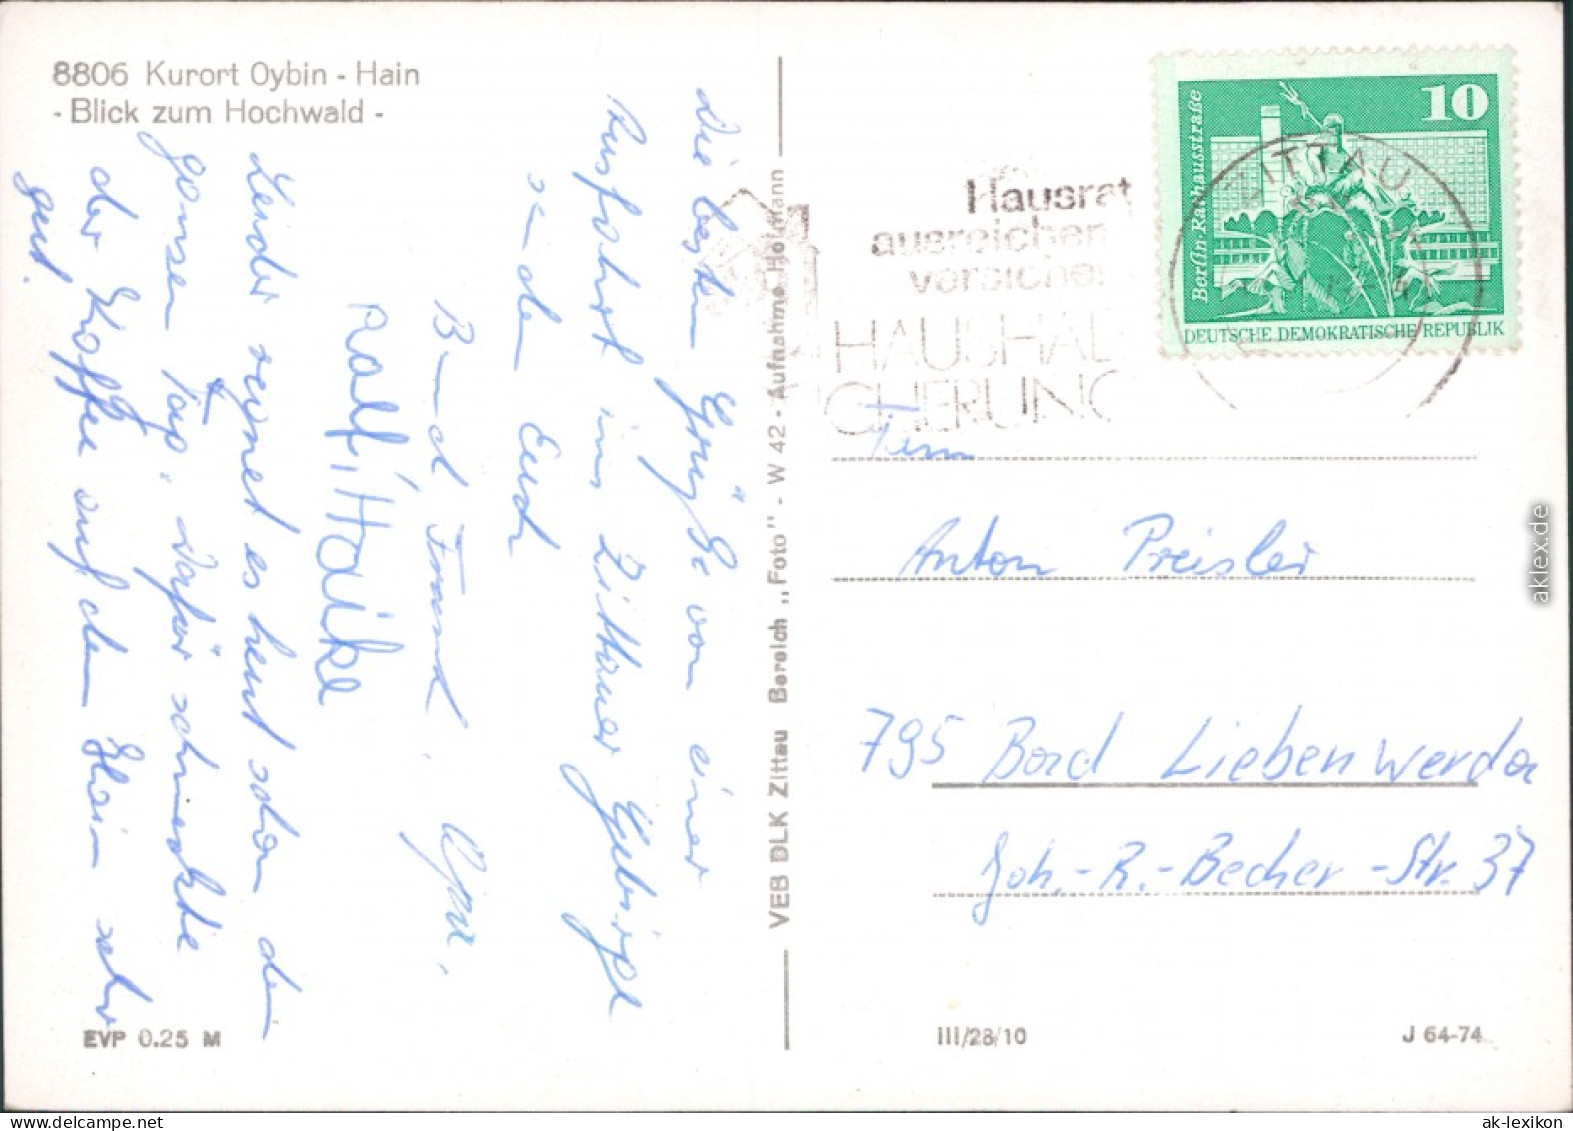 8806 Kurort Oybin - Hain
- Blick zum Hochwald -
Die besten Grüße von einer
Ausfahrt ins Zittauer Gebirge
senden Euch
Bernd Frank, Opa.
Ralf, Haike
Leider regnet es heut schon den
ganzen Tag, dafür schmeckte
der Kaffee auf dem Hain sehr
gut.
VEB DLK Zittau Bereich „Foto" - W 42 - Aufnahme Hofmann
Hausrat
ausreichen
versicher
HAUSHAL
CHERUNG
ZITTAU
10
Berlin-Rathausstraße
DEUTSCHE DEMOKRATISCHE REPUBLIK
Fam
Anton Preisler
795 Bad Liebenwerda
Joh.-R.-Becher-Str. 37
EVP 0.25 M
III/28/10
J 64-74
aklex.de
ak-lexikon